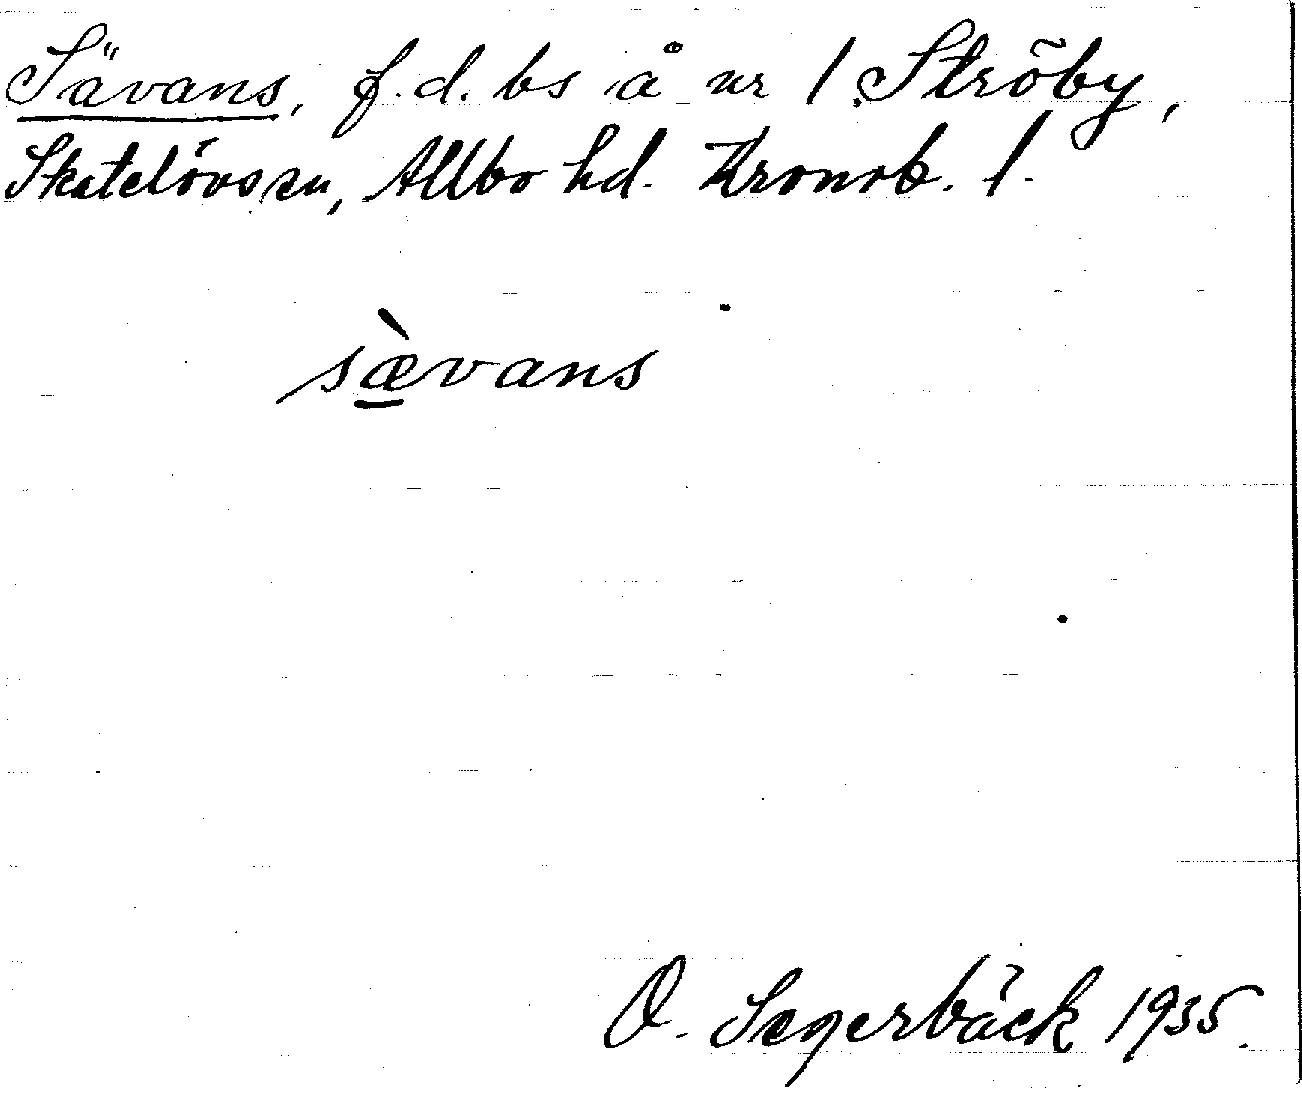 Sävans, f.d. bs å nr 1 Ströby,
Skatelövs sn, Allbo hd. Kronob. l.
sæ̀vans
O. Segerbäck 1935.